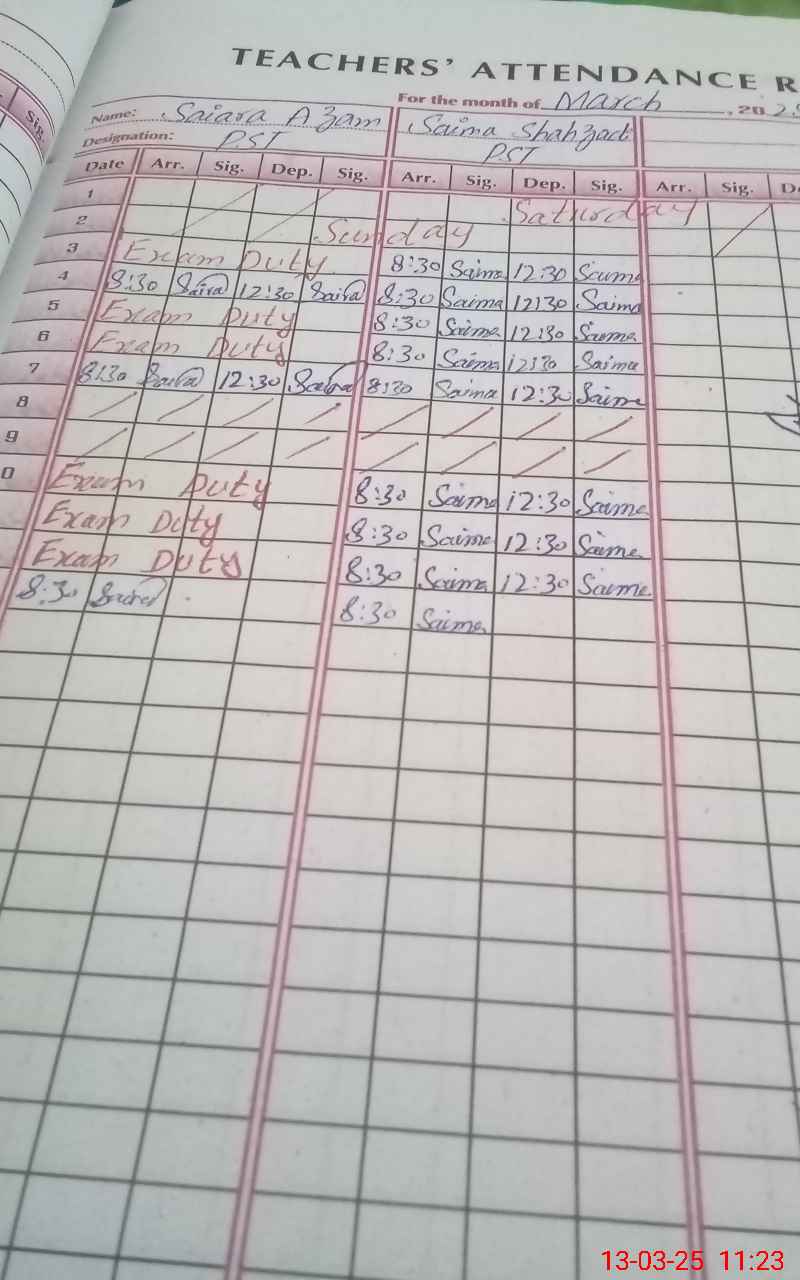 TEACHERS' ATTENDANCE R
For the month of March, 2025
Name: Saiara Azam Saima Shahzad
Designation: PST PST
Date Arr. Sig. Dep. Sig. Arr. Sig. Dep. Sig. Arr. Sig. De
1 Saturday
2 Sunday
3 Exam Duty 8:30 Saima 12:30 Saima
4 8:30 Saira 12:30 Saira 8:30 Saima 12:30 Saima
5 Exam Duty 8:30 Saima 12:30 Saima
6 Exam Duty 8:30 Saima 12:30 Saima
7 8:30 Saira 12:30 Saira 8:30 Saima 12:30 Saima
8
9
0 Exam Duty 8:30 Saima 12:30 Saima
Exam Duty 8:30 Saima 12:30 Saima
Exam Duty 8:30 Saima 12:30 Saima
8:30 Saira 8:30 Saima
Sig.
13-03-25 11:23